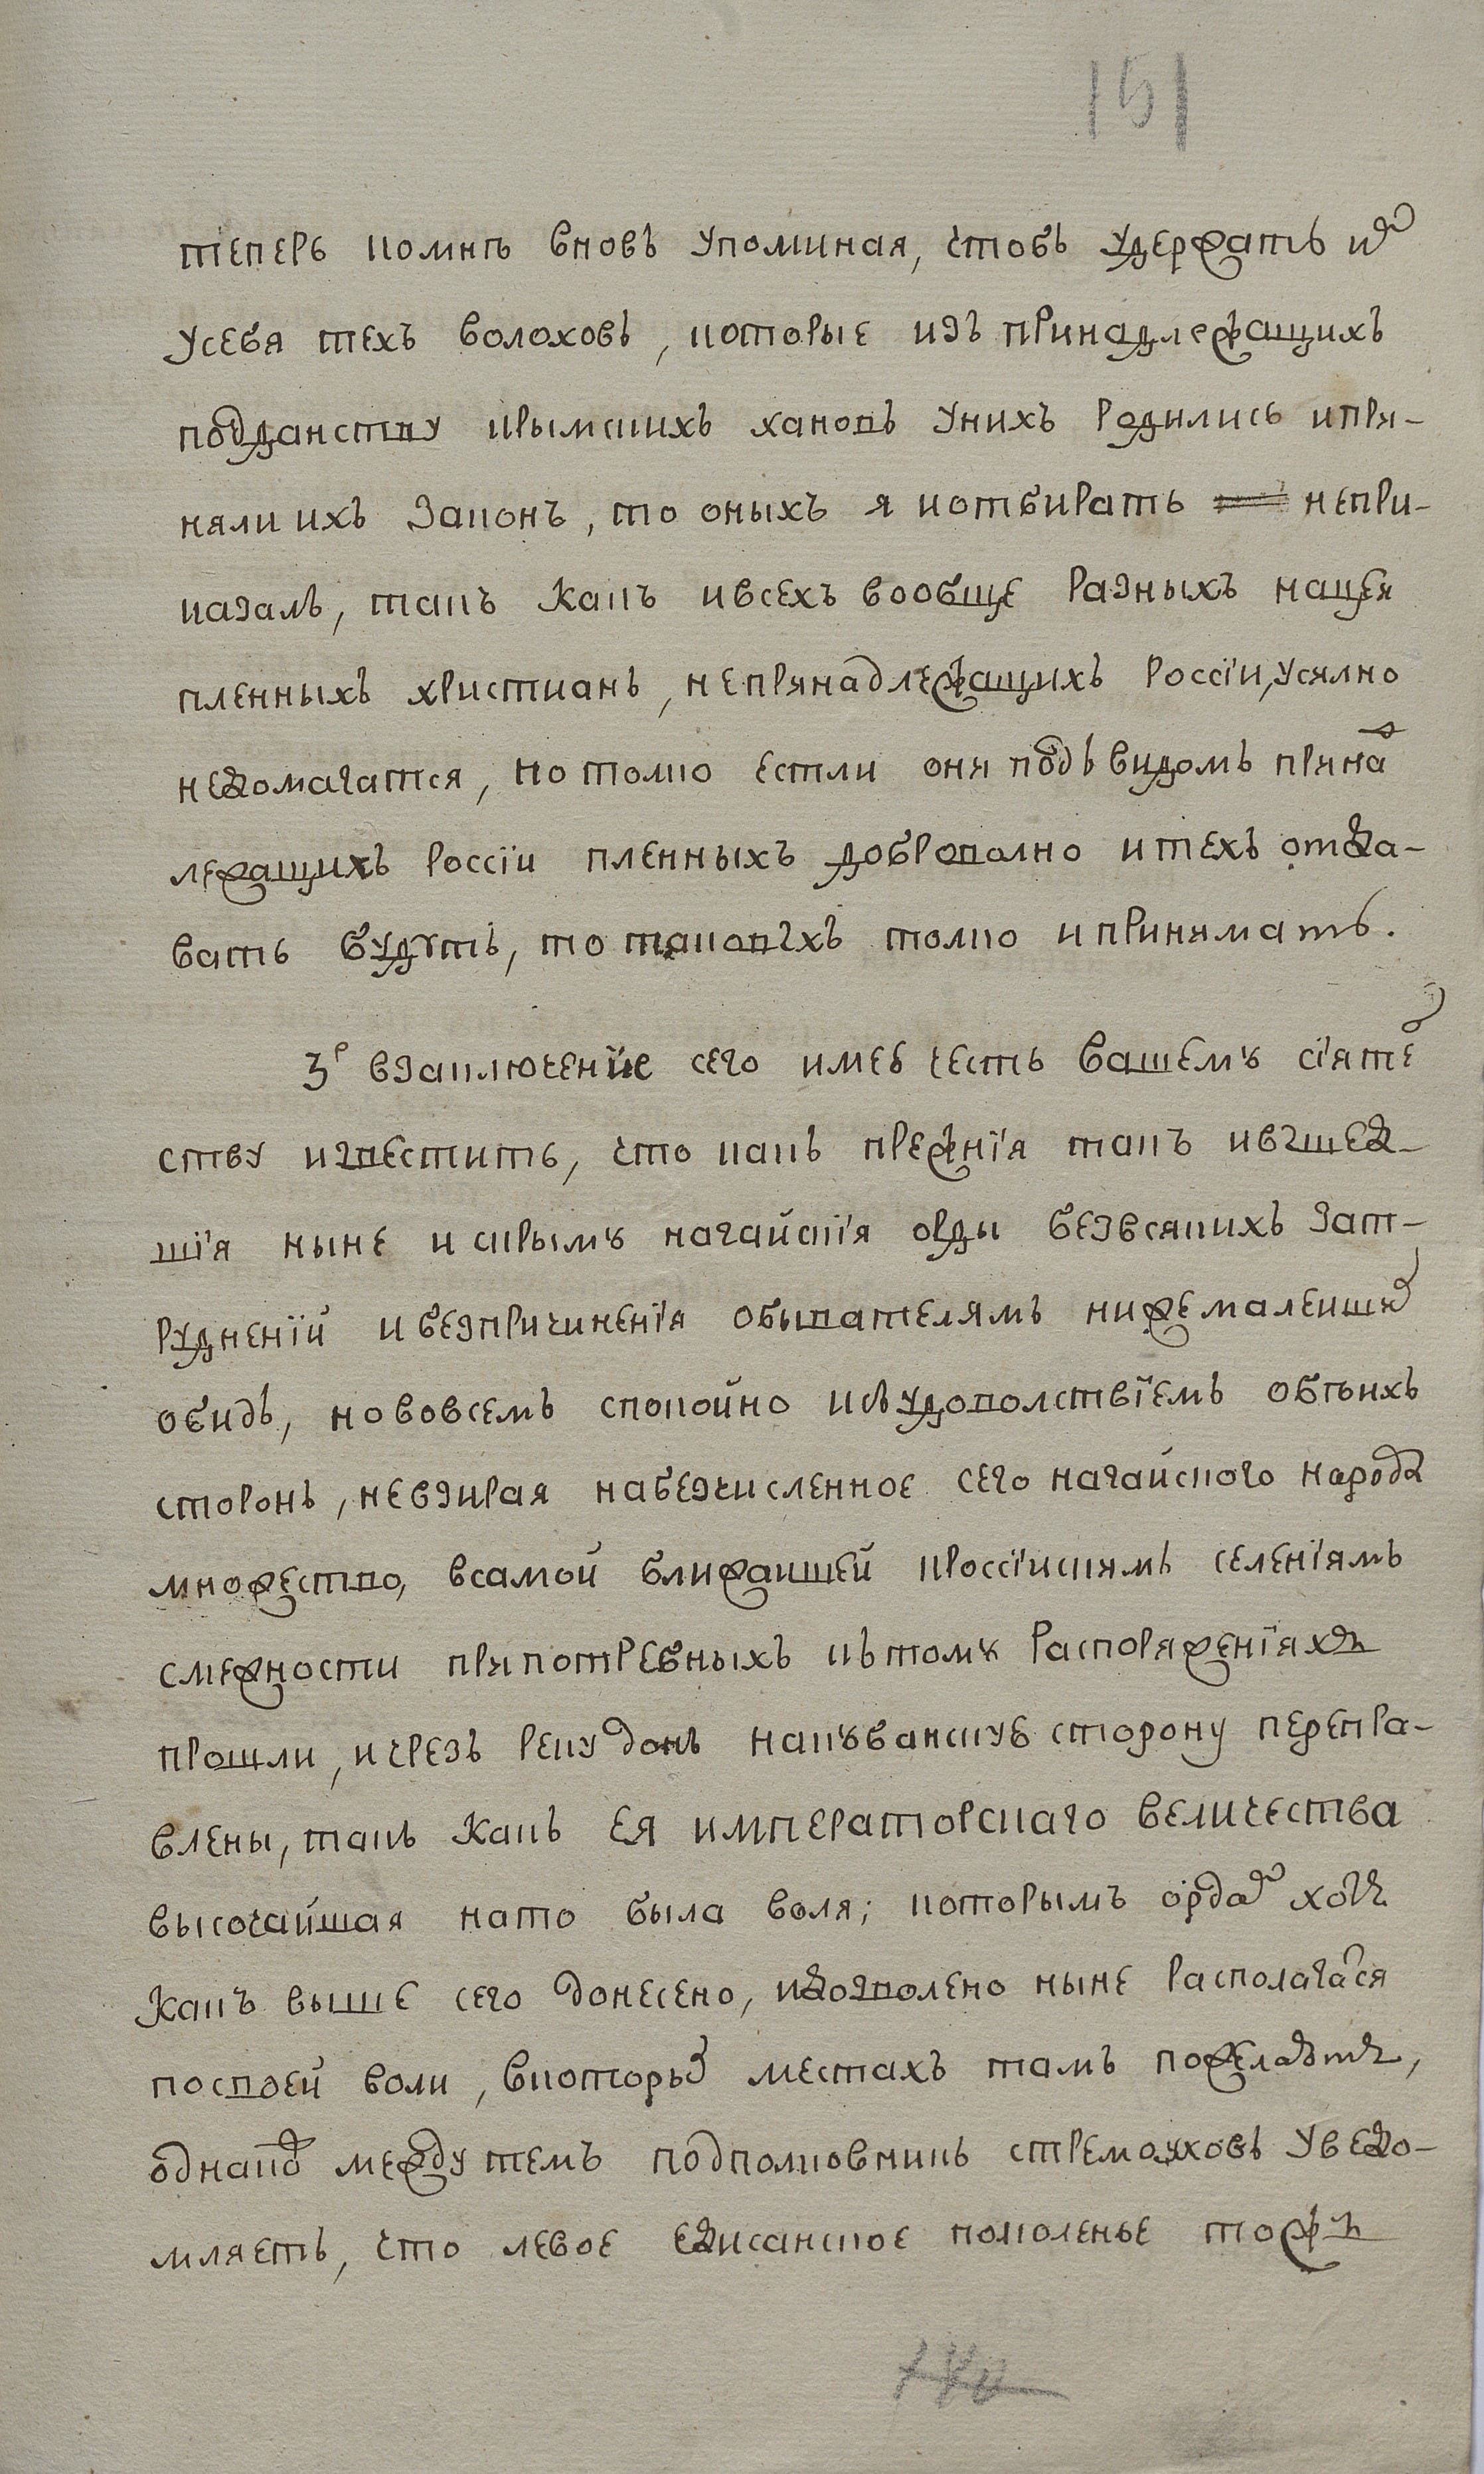 151
теперь комнъ вновь упоминая, чтобъ удержать имъ
усебя техъ волоховъ, которые изъ принадлежащихъ
подданству крымскихъ хановъ унихъ родились ипри-
няли ихъ законъ, то оныхъ я иотбирать непри-
казалъ, такъ какъ ивсехъ вообще разныхъ нацей
пленныхъ христианъ, непринадлежащихъ россіи, усилно
недомагатся, но толко естли они подъ видомъ прина
лежащихъ россіи пленныхъ доброволно итехъ отда-
вать будутъ, то таковыхъ толко ипринимать.
3е взаключеніе сего имею честь вашему сіяте
ству известить, что какъ прежнія такъ ивышед-
шія ныне искрыму нагайскія орды безвсякихъ зат-
рудненій ибезпричиненія обывателямъ нижемалеиших
обидъ, нововсемъ спокойно исъудоволствіемъ обѣихъ
сторонъ, невзирая набезчисленное сего нагайского народа
множество, всамой ближаишей кроссіискимъ селеніямъ
смежности припотребныхъ къ тому распоряженіяхъ
прошли, ичрезъ реку донъ накубанскую сторону перепра-
влены, такъ какъ ея императорскаго величества
высочайшая нато была воля; которымъ ордамъ хотя
какъ выше сего донесено, идозволено ныне располагатся
посвоей воли, вкоторых местахъ тамъ пожелаютъ,
однакожъ между темъ подполковникъ стремоуховъ уведо-
мляетъ, что левое едисанское поколенье тожъ